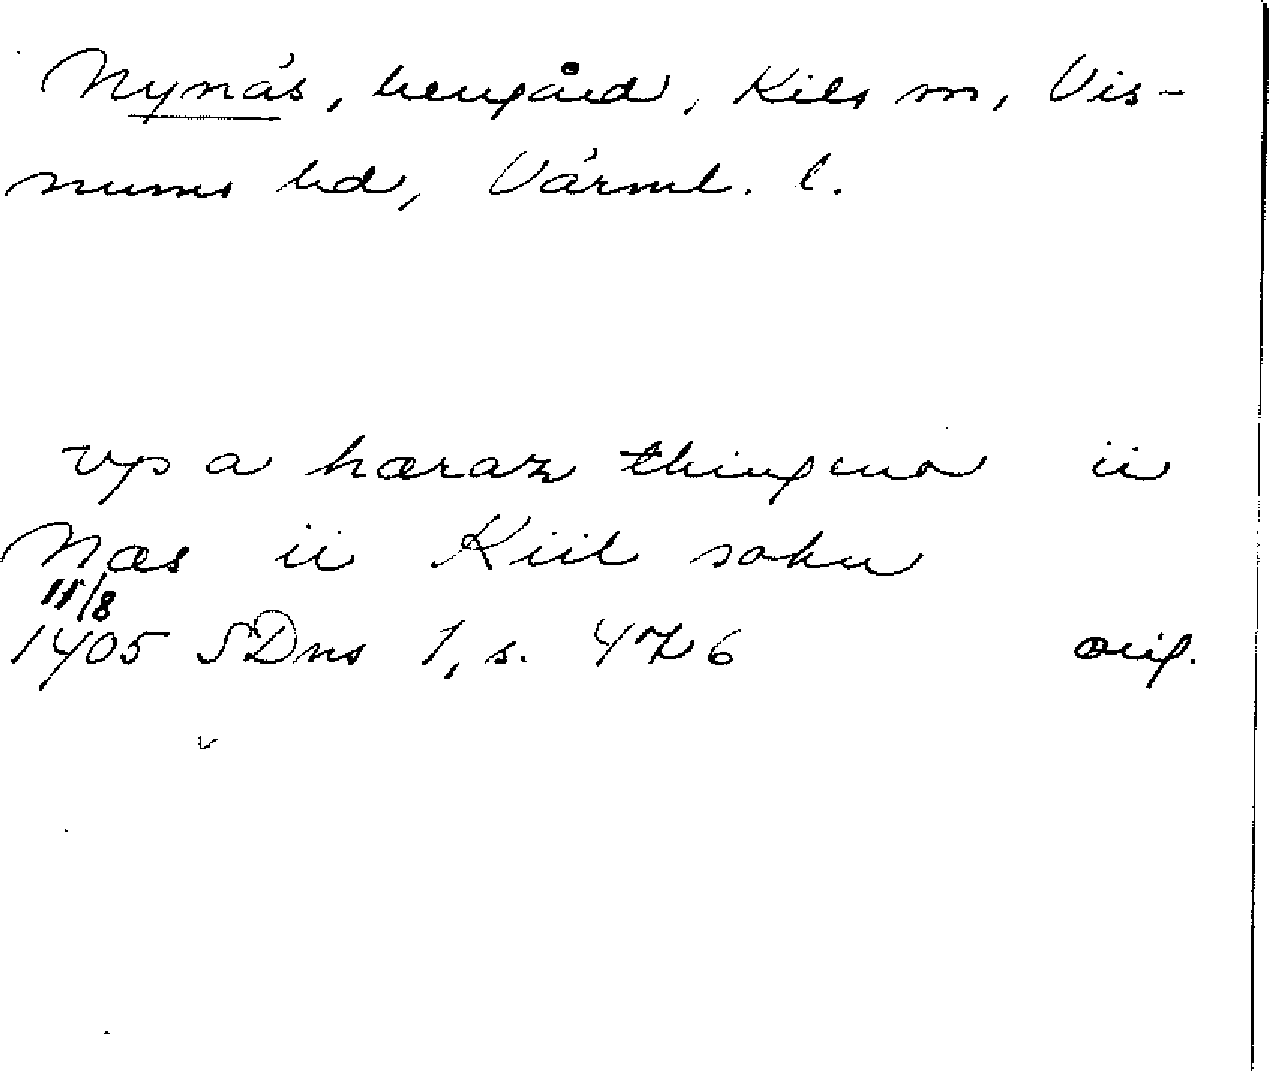 Nynäs, herrgård, Kils sn, Vis-
nums hd, Värml. l.
vp a haraz thingeno ii
Næs ii Kiil sokn
11/8
1405 SDns 1, s. 476 orig.